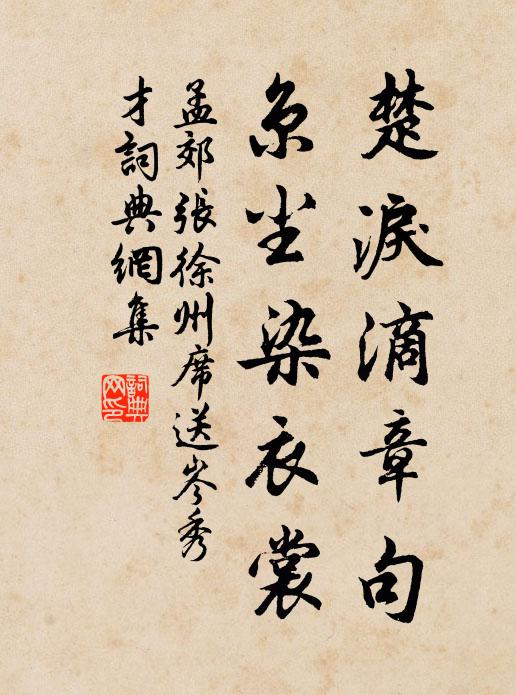 楚淚滴章句
京塵染衣裳
孟郊張徐州席送岑秀
才詞典網集
詞典網印